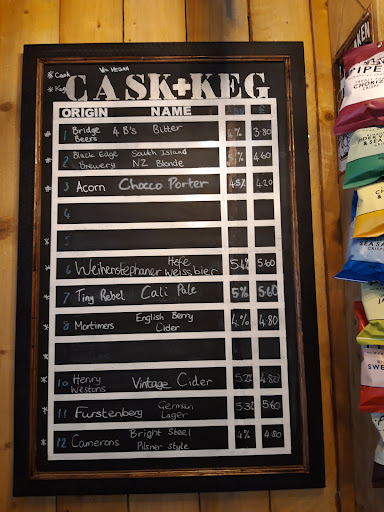 * Cask Ve VEGAN
* Keg
CASK+KEG
ORIGIN NAME
1 Bridge Beers 4 B's Bitter 4% 3.80
2 Black Edge Brewery South Island NZ Blonde 4.60
3 Acorn Chocco Porter 4.5% 4.20
4
5
* 6 Weihenstephaner Hefe Weissbier 5.4% 5.60
* 7 Tiny Rebel Cali Pale 5% 5.60
* 8 Mortimers English Berry Cider 4% 4.80
*
* 10 Henry Westons Vintage Cider 5.2% 4.80
* 11 Furstenberg German Lager 5.3% 5.60
* 12 Camerons Bright Steel Pilsner Style 4% 4.80
PIPE
CHORIZ
SEA SA
CRISPS
SWE